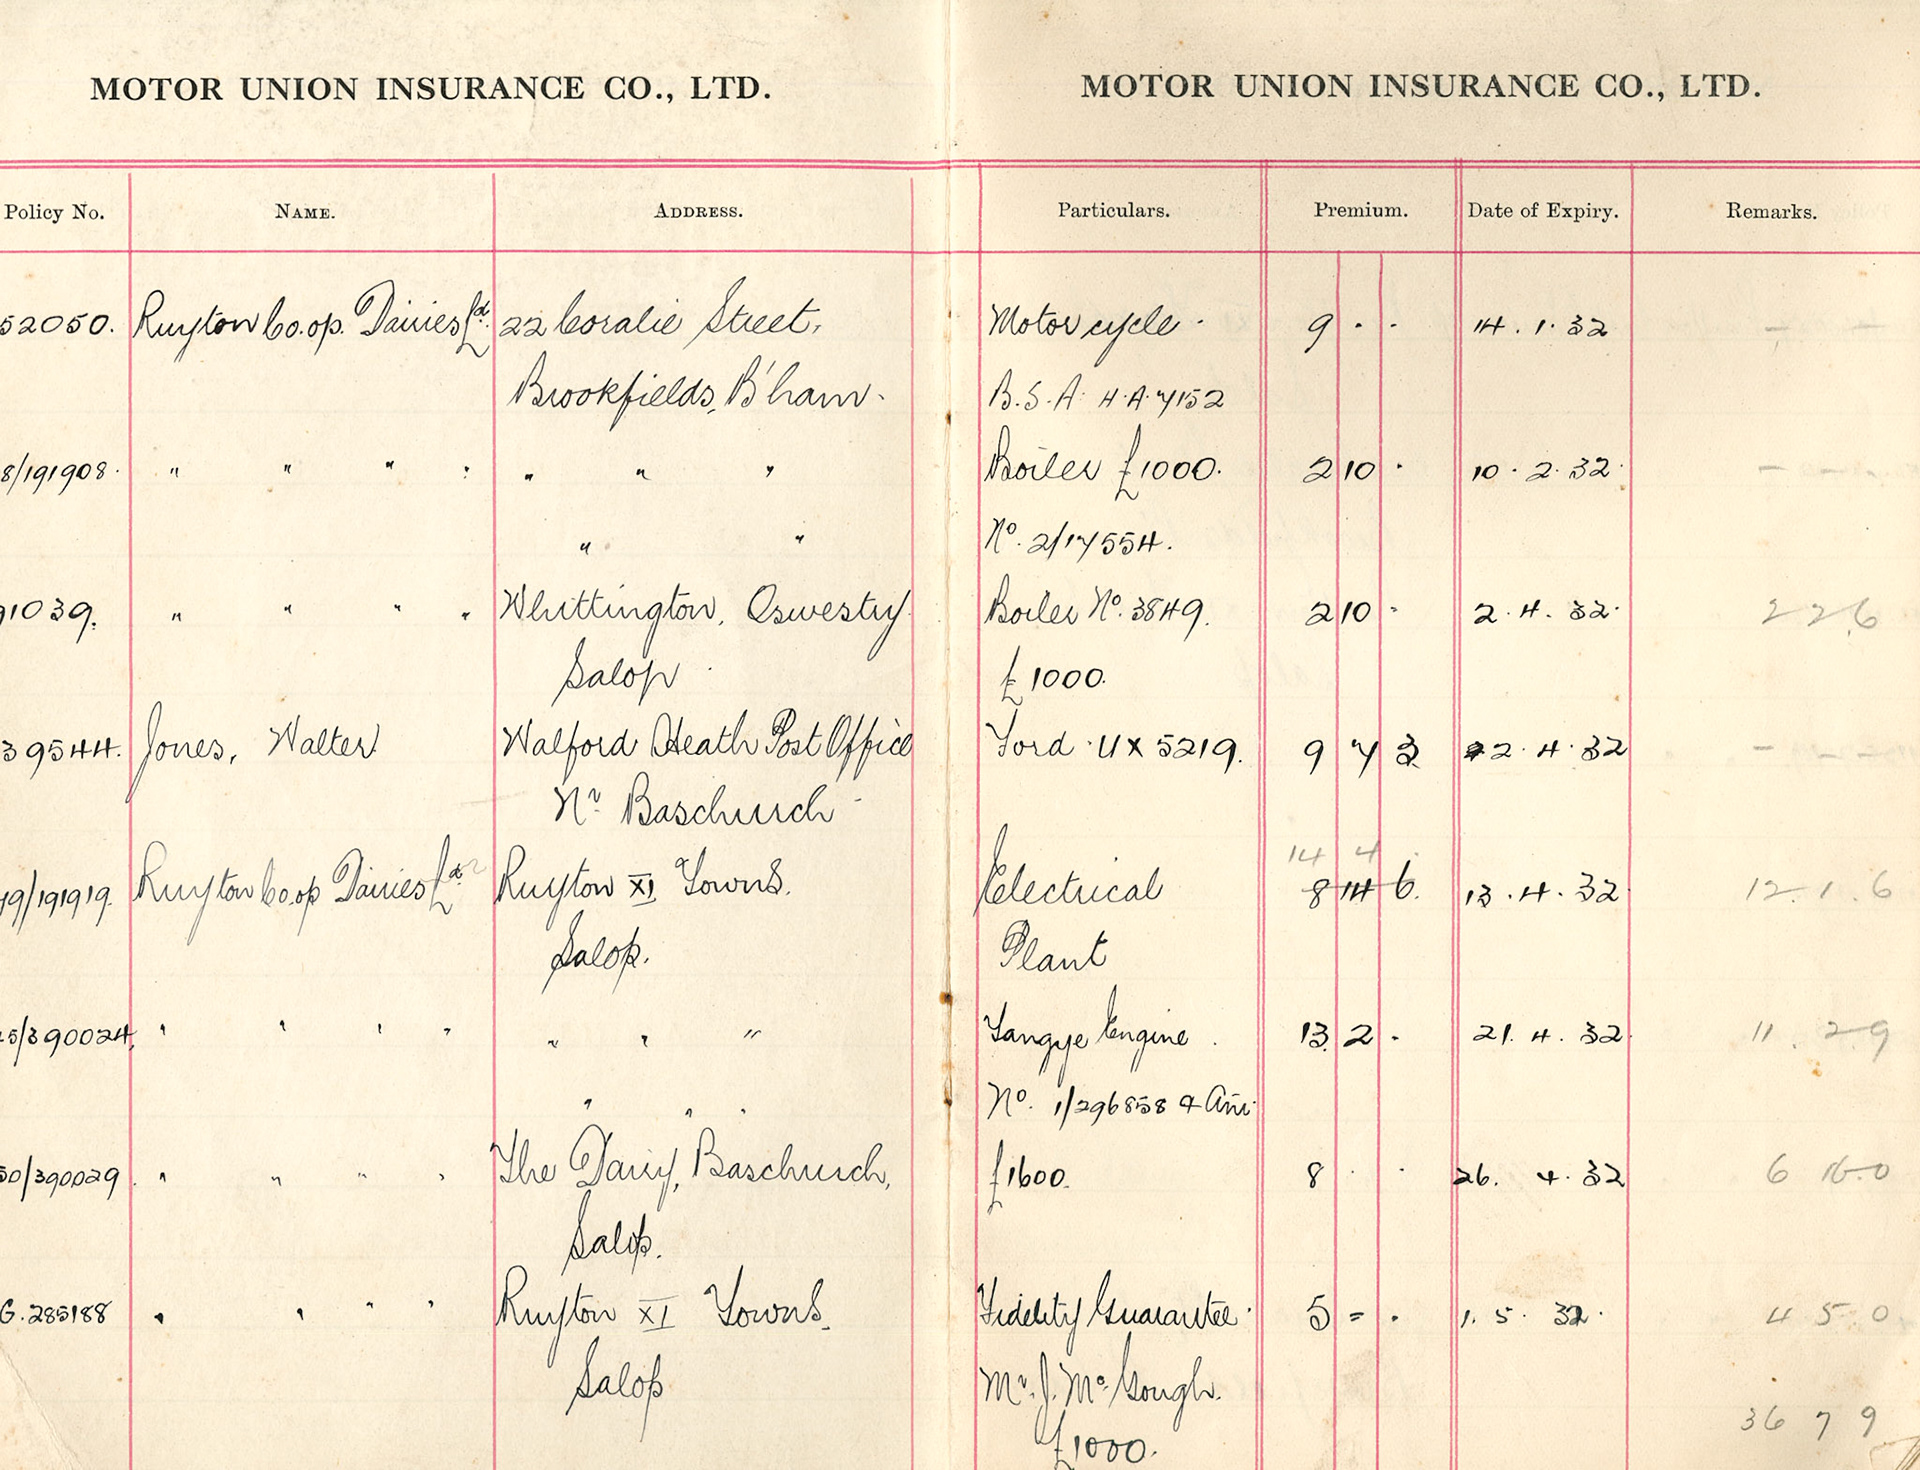 MOTOR UNION INSURANCE CO., LTD. MOTOR UNION INSURANCE CO., LTD.
Policy No. NAME. ADDRESS. Particulars. Premium. Date of Expiry. Remarks.
52050. Ruyton Co.op. Dairies Ld. 22 Coralie Street, Motor cycle 9 . . 14.1.32 -
Brookfields, B'ham. B.S.A. H.A. 7152
8/191908. " " " " " " " Boiler £1000. 2 10 . 10.2.32 -
" " No. 2/17554.
91039. " " " " Whittington, Oswestry Boiler No. 3849. 2 10 - 2.4.32. 2 2 6
Salop £1000.
39544. Jones, Walter Walford Heath Post Office Ford UX 5219. 9 7 3 22.4.32 -
Nr Baschurch
14 4
49/191919. Ruyton Co.op Dairies Ld. Ruyton XI Towns. Electrical 8 14 6. 13.4.32 12.1.6
Salop. Plant
5/390024. " " " " " " " Tangye Engine. 13. 2 . 21.4.32 11. 2 9
" " " No. 1/296858 &
50/390029. " " " " The Dairy, Baschurch, £1600. 8 . . 26.4.32 6 16.0
Salop.
G.285188 " " " " Ruyton XI Towns. Fidelity Guarantee. 5 = . 1.5.32. 4 5.0
Salop Mr. J. Mc Gough.
£1000. 36 7 9